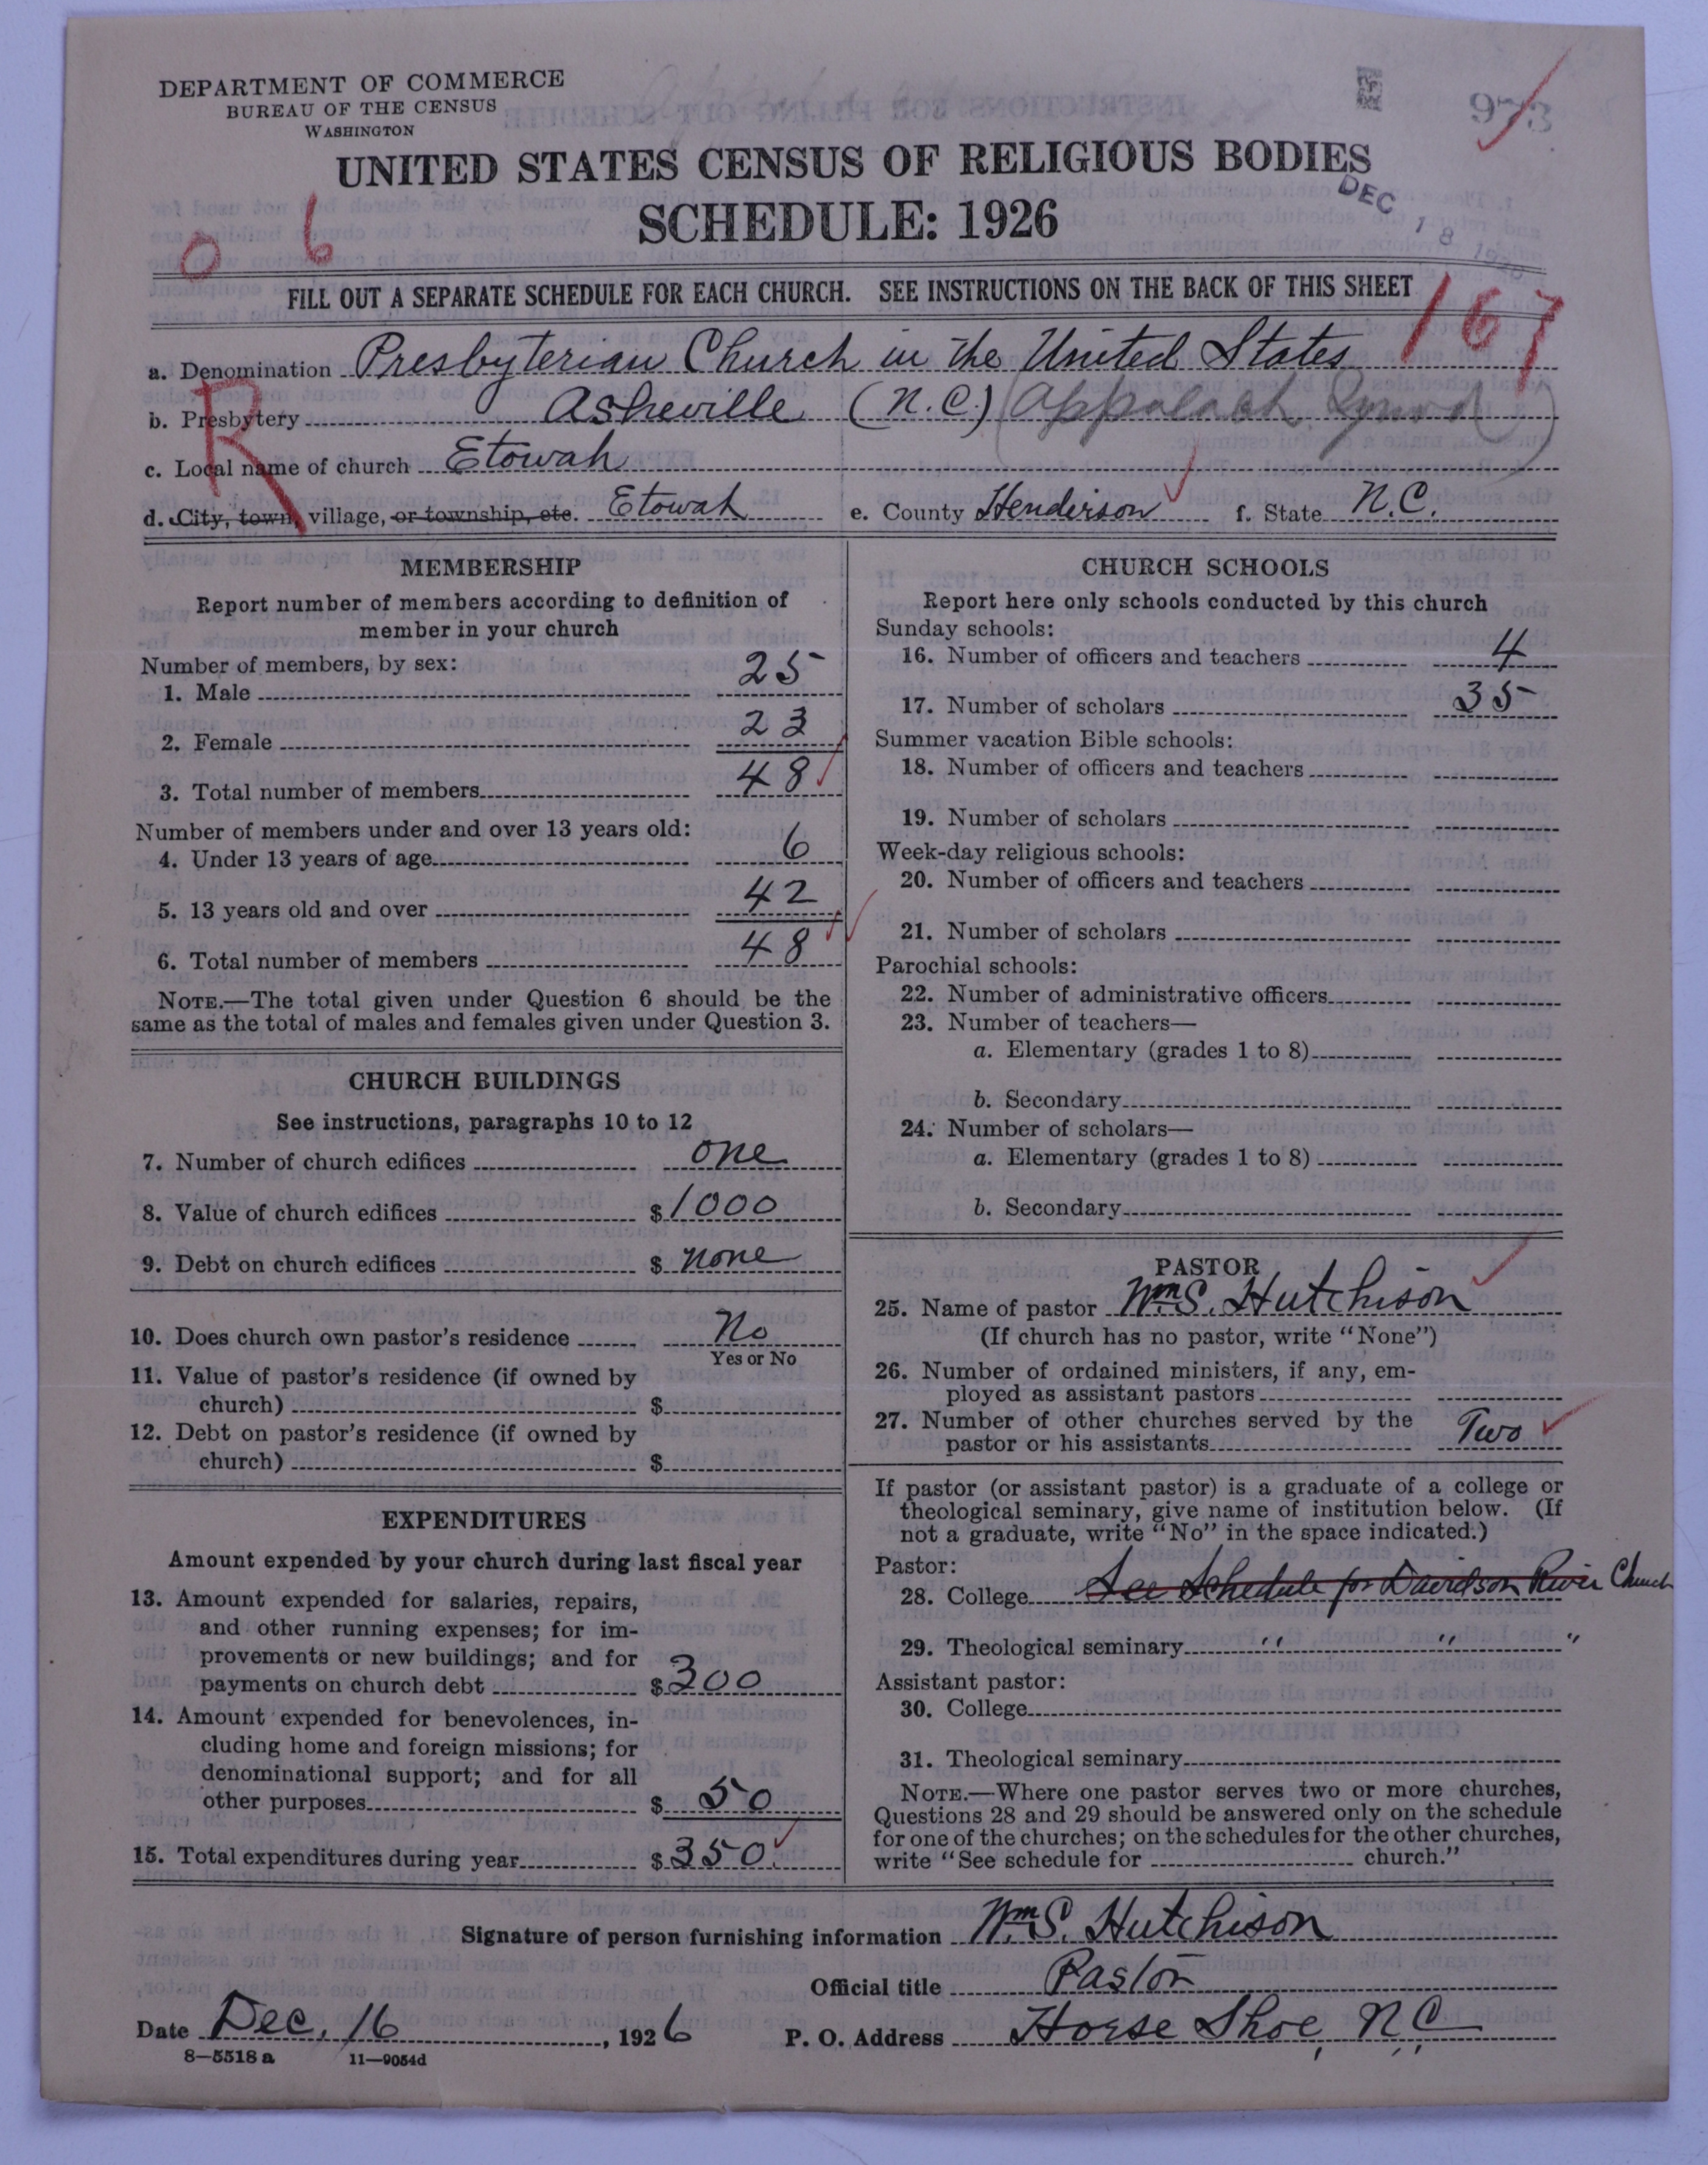 DEPARTMENT OF COMMERCE
BUREAU OF THE CENSUS
WASHINGTON
973
UNITED STATES CENSUS OF RELIGIOUS BODIES
SCHEDULE: 1926
DEC 18 1926
0 6
FILL OUT A SEPARATE SCHEDULE FOR EACH CHURCH. SEE INSTRUCTIONS ON THE BACK OF THIS SHEET
167
a. Denomination Presbyterian Church in the United States
b. Presbytery Asheville (N.C.) (Appalach. Synod)
R
c. Local name of church Etowah
d. City, town, village, or township, etc. Etowah e. County Henderson f. State N.C.
MEMBERSHIP
Report number of members according to definition of
member in your church
Number of members, by sex:
1. Male 25
2. Female 23
3. Total number of members 48
Number of members under and over 13 years old:
4. Under 13 years of age 6
5. 13 years old and over 42
6. Total number of members 48
NOTE.—The total given under Question 6 should be the
same as the total of males and females given under Question 3.
CHURCH BUILDINGS
See instructions, paragraphs 10 to 12
7. Number of church edifices one
8. Value of church edifices $ 1000
9. Debt on church edifices $ none
10. Does church own pastor's residence No
Yes or No
11. Value of pastor's residence (if owned by
church) $
12. Debt on pastor's residence (if owned by
church) $
EXPENDITURES
Amount expended by your church during last fiscal year
13. Amount expended for salaries, repairs,
and other running expenses; for im-
provements or new buildings; and for
payments on church debt $ 300
14. Amount expended for benevolences, in-
cluding home and foreign missions; for
denominational support; and for all
other purposes $ 50
15. Total expenditures during year $ 350
CHURCH SCHOOLS
Report here only schools conducted by this church
Sunday schools:
16. Number of officers and teachers 4
17. Number of scholars 35
Summer vacation Bible schools:
18. Number of officers and teachers
19. Number of scholars
Week-day religious schools:
20. Number of officers and teachers
21. Number of scholars
Parochial schools:
22. Number of administrative officers
23. Number of teachers—
a. Elementary (grades 1 to 8)
b. Secondary
24. Number of scholars—
a. Elementary (grades 1 to 8)
b. Secondary
PASTOR
25. Name of pastor Wm. S. Hutchison
(If church has no pastor, write "None")
26. Number of ordained ministers, if any, em-
ployed as assistant pastors
27. Number of other churches served by the
pastor or his assistants Two
If pastor (or assistant pastor) is a graduate of a college or
theological seminary, give name of institution below. (If
not a graduate, write "No" in the space indicated.)
Pastor:
28. College See Schedule for Davidson River Church
29. Theological seminary " " "
Assistant pastor:
30. College
31. Theological seminary
NOTE.—Where one pastor serves two or more churches,
Questions 28 and 29 should be answered only on the schedule
for one of the churches; on the schedules for the other churches,
write "See schedule for church."
Signature of person furnishing information Wm. S. Hutchison
Official title Pastor
Date Dec. 16, 1926 P. O. Address Horse Shoe, N.C.
8—5518 a 11—9054d